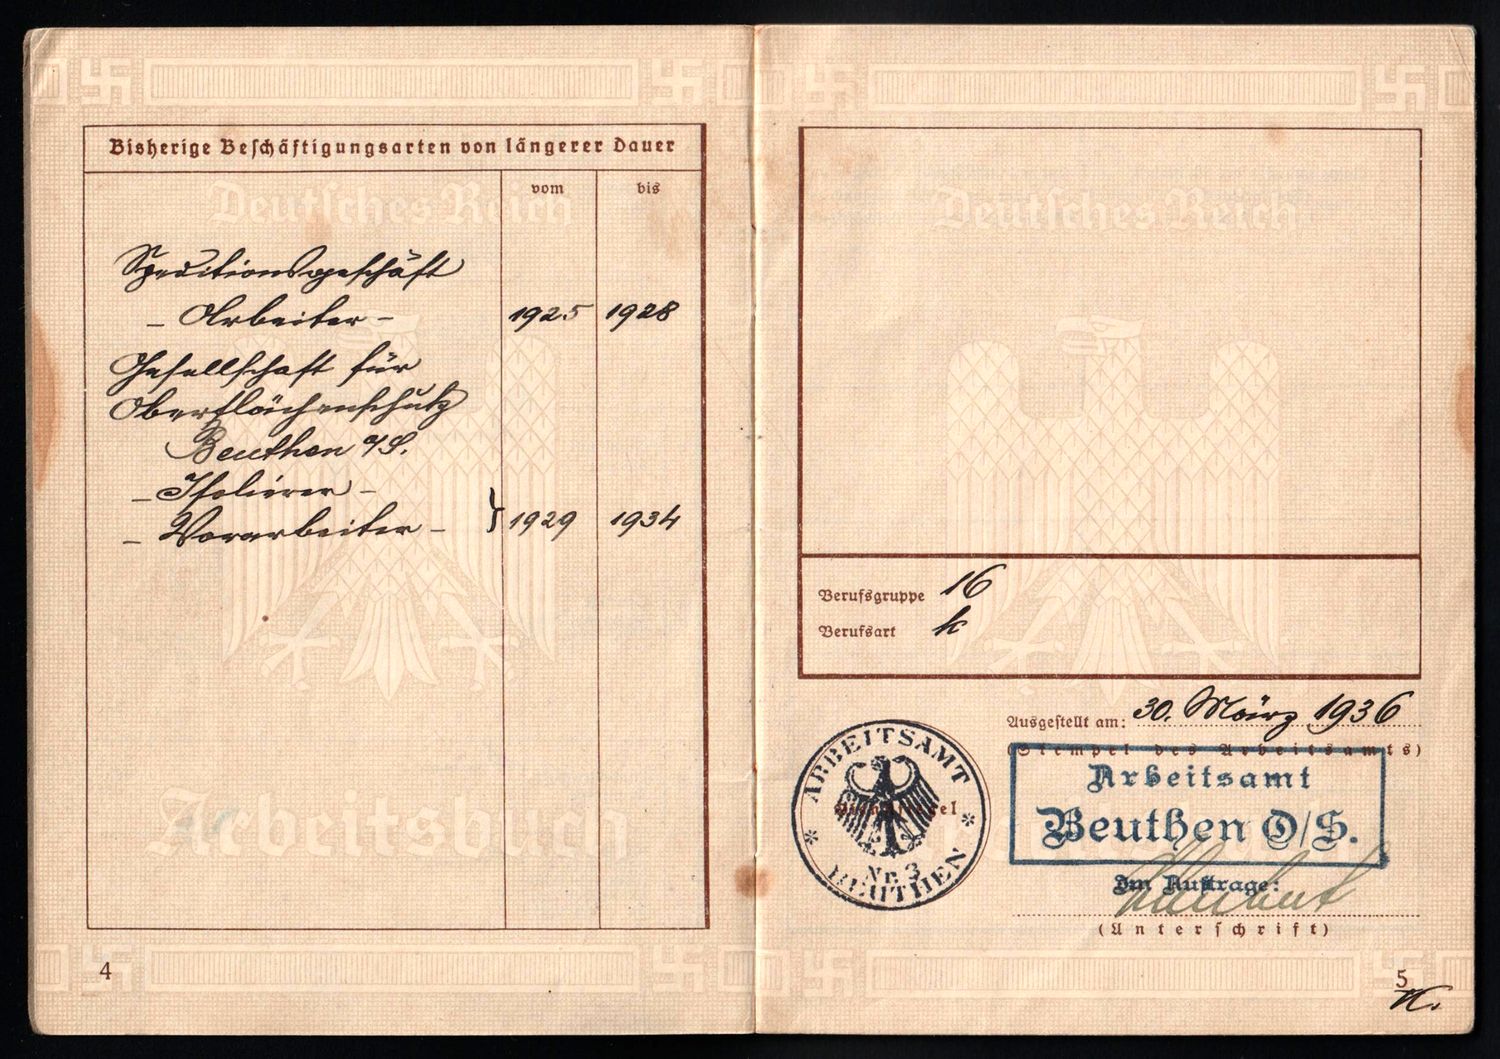 Bisherige Beschäftigungsarten von längerer Dauer
vom bis
Deutsches Reich
Speditionsgeschäft
- Arbeiter - 1925 1928
Gesellschaft für
Oberflächenschutz
Beuthen O/S.
- Isolierer -
- Vorarbeiter - } 1929 1934
Arbeitsbuch
4
Deutsches Reich
Berufsgruppe 16
Berufsart k
Ausgestellt am: 30. März 1936
(Stempel des Arbeitsamts)
Arbeitsamt
Beuthen O/S.
Im Auftrage:
(Unterschrift)
ARBEITSAMT
Nr. 3
BEUTHEN
5